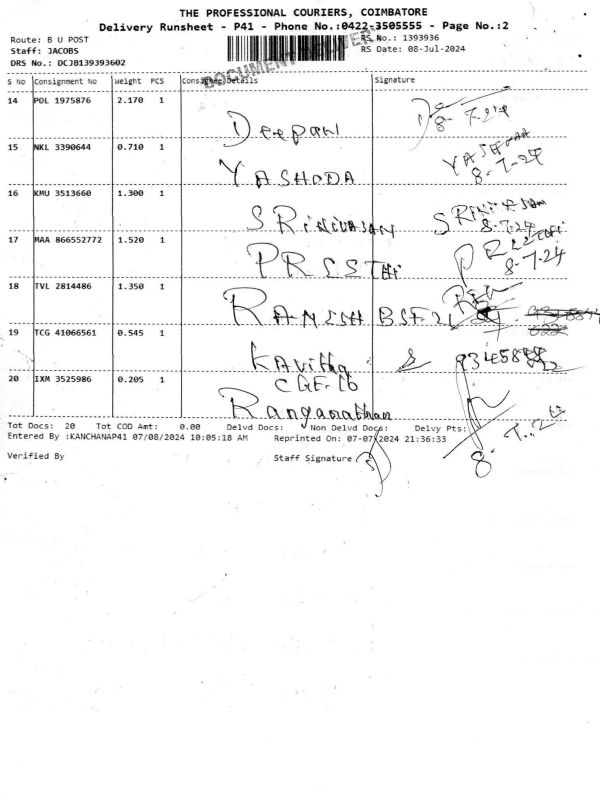 THE PROFESSIONAL COURIERS, COIMBATORE
Delivery Runsheet - P41 - Phone No.:0422-3505555 - Page No.:2
Route: B U POST RS No.: 1393936
Staff: JACOBS RS Date: 08-Jul-2024
DRS No.: DCJB139393602
DOCUMENT DELIVER
S No Consignment No Weight PCS Consignee Details Signature
14 POL 1975876 2.170 1
Deepan 8-7-24
15 NKL 3390644 0.710 1 YASHODA
YASHODA 8-7-24
16 KMU 3513660 1.300 1
SRINIVASAN SRINIVASAN
8-7-24
17 MAA 866552772 1.520 1
PREETHI 8-7-24
18 TVL 2814486 1.350 1
RAMESH BSF 21
19 TCG 41066561 0.545 1
Kavitha
20 IXM 3525986 0.205 1 CGE-16
Ranganathan
Tot Docs: 20 Tot COD Amt: 0.00 Delvd Docs: Non Delvd Docs: Delvy Pts:
Entered By :KANCHANAP41 07/08/2024 10:05:18 AM Reprinted On: 07-07/2024 21:36:33
Verified By Staff Signature